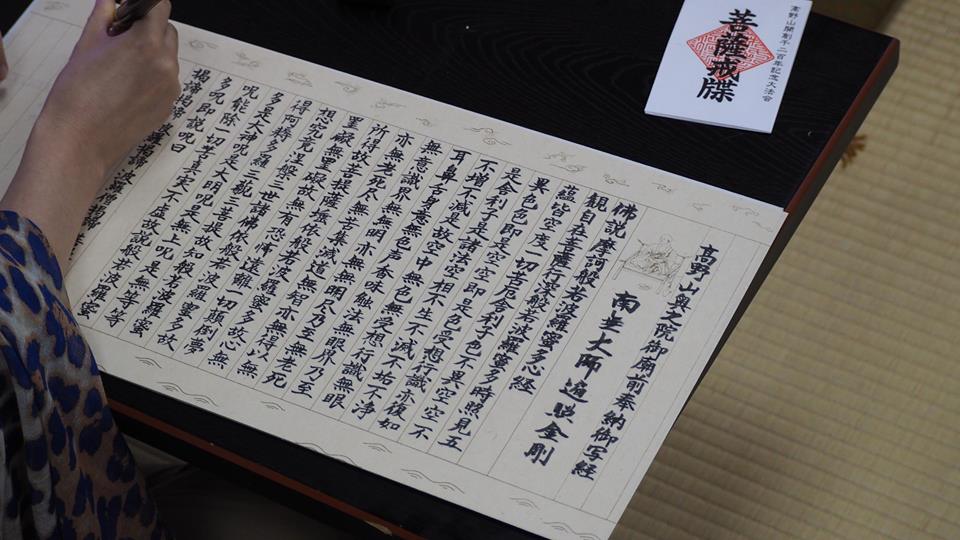 高野山開創千二百年記念大法会
菩薩戒牒
高野山奥之院御廟前奉納御写経
南無大師遍照金剛
佛説摩訶般若波羅蜜多心経
観自在菩薩行深般若波羅蜜多時照見五
蘊皆空度一切苦厄舎利子色不異空空不
異色色即是空空即是色受想行識亦復如
是舎利子是諸法空相不生不滅不垢不浄
不増不減是故空中無色無受想行識無眼
耳鼻舌身意無色声香味触法無眼界乃至
無意識界無無明亦無無明尽乃至無老死
亦無老死尽無苦集滅道無智亦無得以無
所得故菩提薩埵依般若波羅蜜多故心無
罣礙無罣礙故無有恐怖遠離一切顛倒夢
想究竟涅槃三世諸佛依般若波羅蜜多故
得阿耨多羅三藐三菩提故知般若波羅蜜
多是大神呪是大明呪是無上呪是無等等
呪能除一切苦真実不虚故説般若波羅蜜
多呪即説呪曰
羯諦羯諦